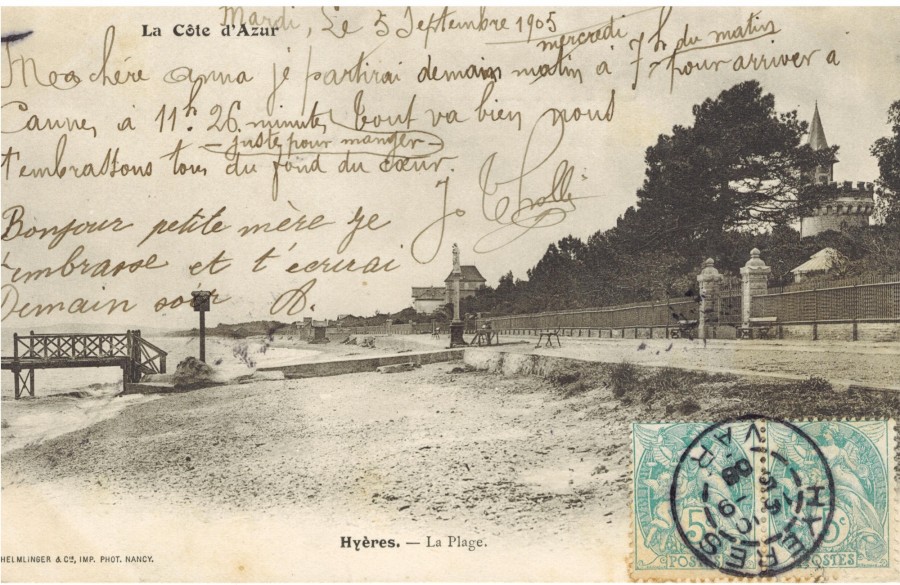 La Côte d'Azur
Mardi, Le 5 Septembre 1905
mercredi
Ma chère anna je partirai demain matin à 7h du matin pour arriver a
Cannes à 11h. 26 minutes tout va bien nous
- juste pour manger -
t'embrassons tous du fond du cœur.
Bonjour petite mère je
t'embrasse et t'écrirai
Demain soir A.
HYÈRES
VAR
5c
POSTES
POSTES
Hyères. — La Plage.
HELMLINGER & Cie, IMP. PHOT. NANCY.